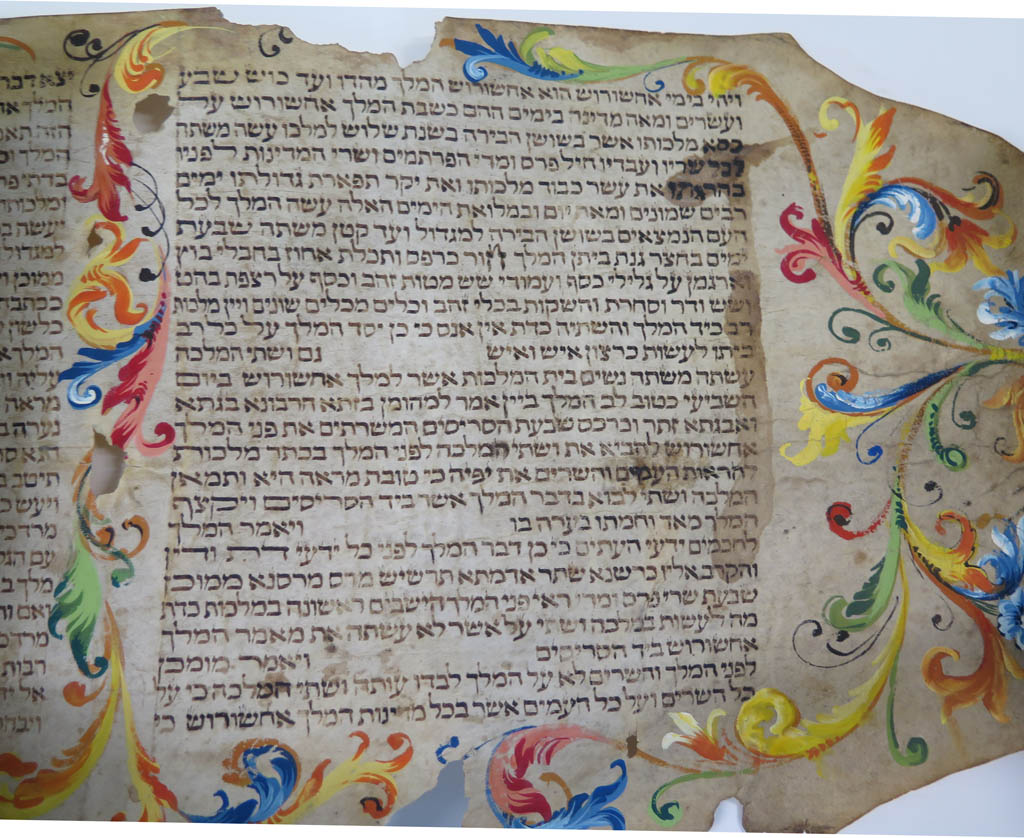 ויהי בימי אחשורוש הוא אחשורוש המלך מהדו ועד כוש שבע
ועשרים ומאה מדינה בימים ההם כשבת המלך אחשורוש על
כסא מלכותו אשר בשושן הבירה בשנת שלוש למלכו עשה משתה
לכל שריו ועבדיו חיל פרס ומדי הפרתמים ושרי המדינות לפניו
בהראתו את עשר כבוד מלכותו ואת יקר תפארת גדולתו ימים
רבים שמונים ומאת יום ובמלואת הימים האלה עשה המלך לכל
העם הנמצאים בשושן הבירה למגדול ועד קטן משתה שבעת
ימים בחצר גנת ביתן המלך חור כרפס ותכלת אחוז בחבלי בוץ
וארגמן על גלילי כסף ועמודי שש מטות זהב וכסף על רצפת בהט
ושש ודר וסחרת והשקות בכלי זהב וכלים מכלים שונים ויין מלכות
רב כיד המלך והשתיה כדת אין אנס כי כן יסד המלך על כל רב
ביתו לעשות כרצון איש ואיש גם ושתי המלכה
עשתה משתה נשים בית המלכות אשר למלך אחשורוש ביום
השביעי כטוב לב המלך ביין אמר למהומן בזתא חרבונא בגתא
ואבגתא זתר וכרכס שבעת הסריסים המשרתים את פני המלך
אחשורוש להביא את ושתי המלכה לפני המלך בכתר מלכות
להראות העמים והשרים את יפיה כי טובת מראה היא ותמאן
המלכה ושתי לבוא בדבר המלך אשר ביד הסריסים ויקצף
המלך מאד וחמתו בערה בו ויאמר המלך
לחכמים ידעי העתים כי כן דבר המלך לפני כל ידעי דת ודין
והקרב אליו כרשנא שתר אדמתא תרשיש מרס מרסנא ממוכן
שבעת שרי פרס ומדי ראי פני המלך הישבים ראשונה במלכות כדת
מה לעשות במלכה ושתי על אשר לא עשתה את מאמר המלך
אחשורוש ביד הסריסים ויאמר מומכן
לפני המלך והשרים לא על המלך לבדו עותה ושתי המלכה כי על
כל השרים ועל כל העמים אשר בכל מדינות המלך אחשורוש כי
יצא דבר
המלך
הזה
המלך
בדתי
עשה
ממוכן
ככתבה
כלשון
עליה
מראה
נערה
תיטב
ויעש
עם
מלך
ואם
רבות
אל